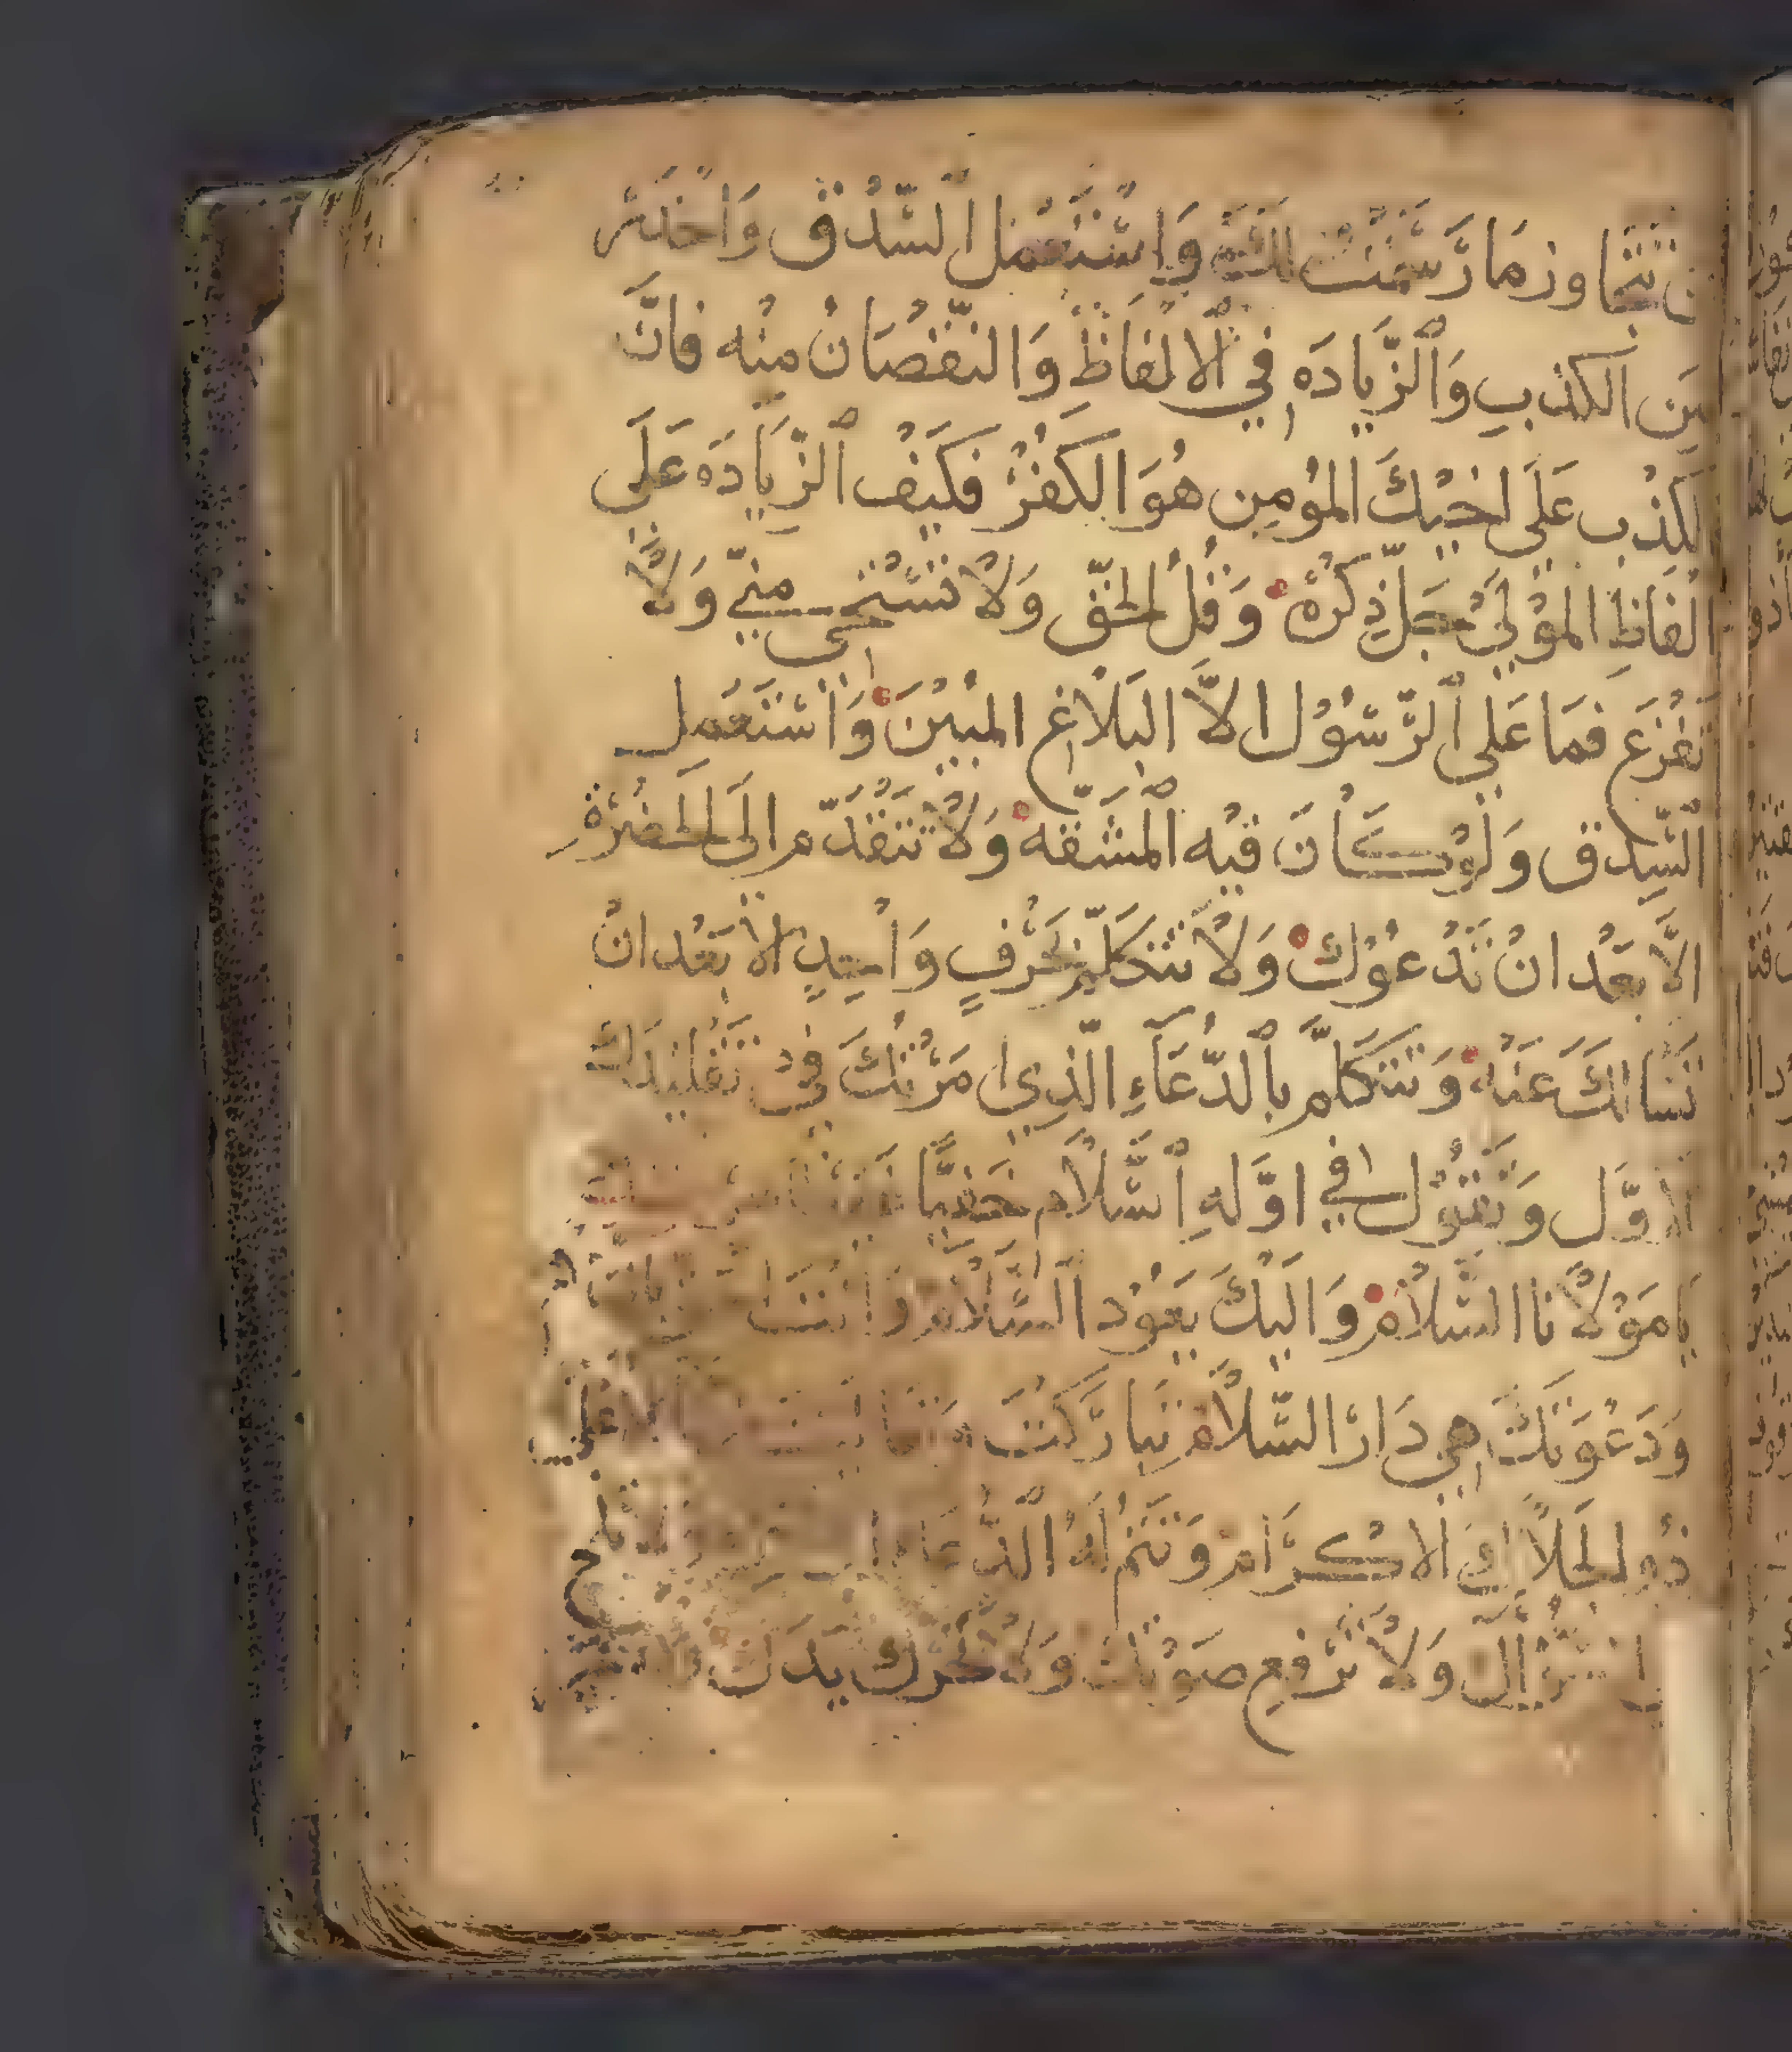 تتجاوز مَا رَسَمْتُ لَكَ وَاسْتَعْمِل السِّدْق وَاحْذَر
مِنَ الكذب وَالزّيادَه فِي الالْفَاظِ وَالنّقْصَانُ مِنْه فَانَّ
الكِذْب عَلَى اخِيْكَ المُؤمِن هُوَ الكُفْرْ فَكَيْفْ الزِّيَادَه عَلَى
الْفَاظِ المَوْلَى جَلّ ذِكْرُهْ وَقُلْ الحَقّ وَلا تَسْتَحِي مِنِّي وَلا
تَفْزَع فَمَا عَلَى الرَّسُوْل الاَّ البَلاغ المُبِيْنَ وَاسْتَعْمِل
السِّدق وَلَوْ كَانَ فِيْه المشَقّه وَلا تَتَقَدَّم الَى الحَضْرَة
الاَّ بَعْد انْ نَدْعُوْكْ وَلا تَتَكَلَّم بحَرْفٍ وَاحِدٍ الا بَعْد انْ
نَسَالكَ عَنْهْ وَتَتَكَلَّم بِالدّعَاءِ الّذِي امَرْتُكَ فِيْ تَقْلِيْدَكْ
الاوَّل وَتَقُوْل فِي اوَّلهِ السَّلام
يَا مَوْلانَا السَّلامْ وَالَيْكَ يَعُوْد السَّلام
وَدَعْوَتكَ هِي دَارُ السّلامْ تَبَارَكْتَ
ذُو الجَلال وَالاكْرَامْ وَتَتم الدُّعَا
وَلا تَرْفع صَوْتَكَ وَلا تحَرّك يَدَكَ